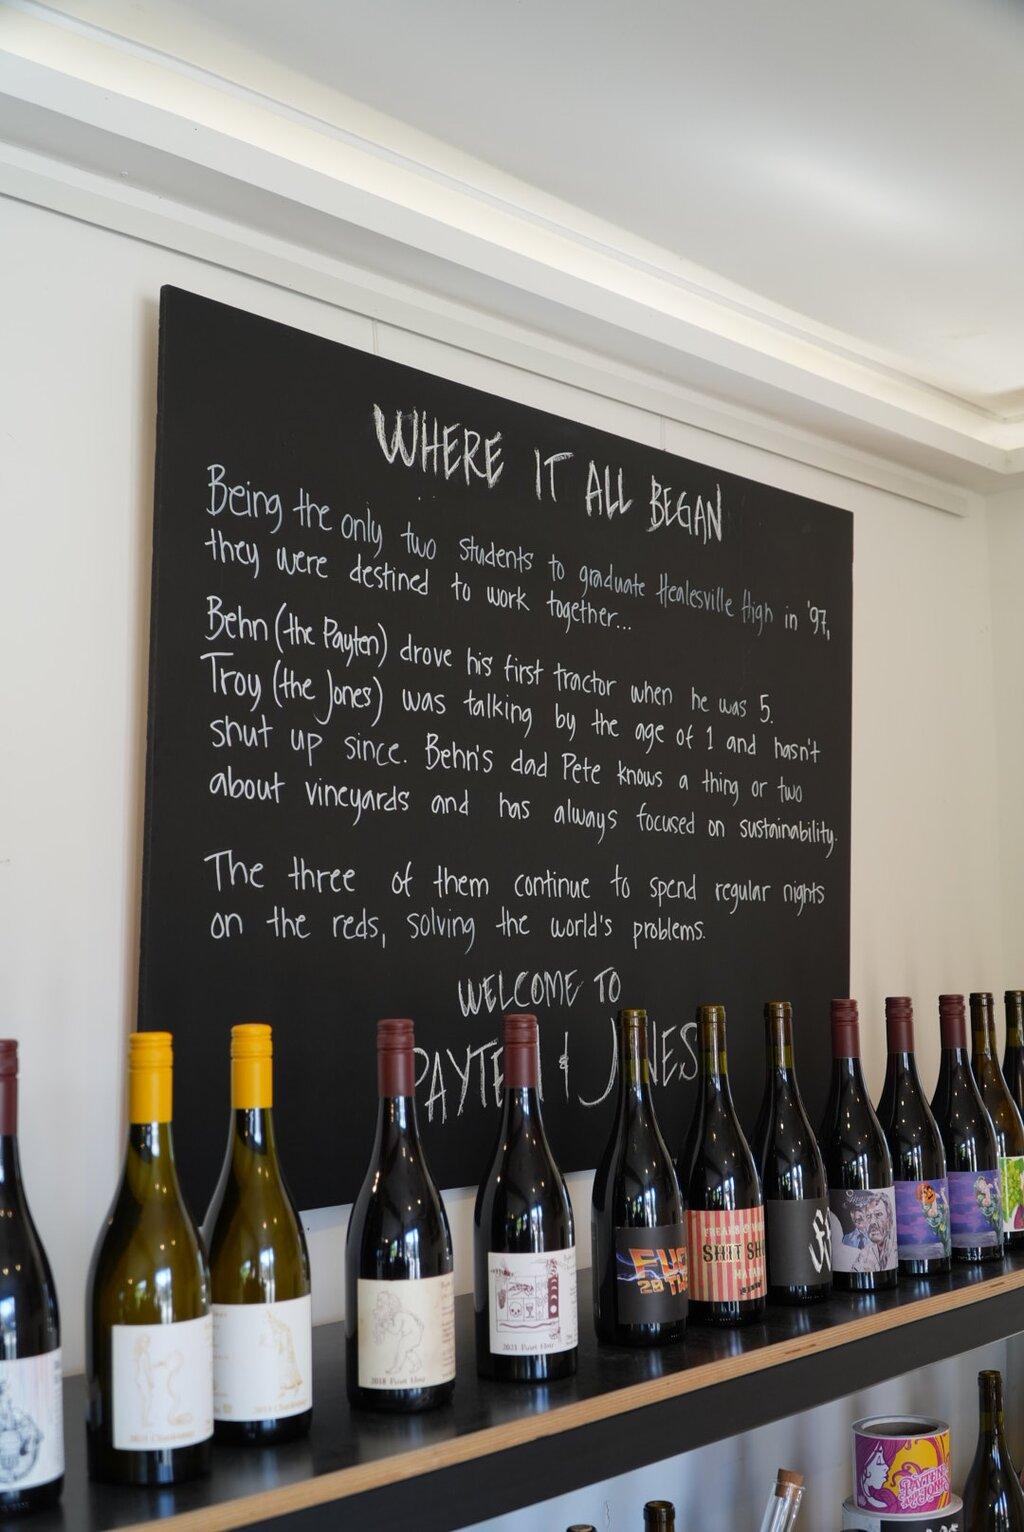 WHERE IT ALL BEGAN
Being the only two students to graduate Healesville High in '97,
they were destined to work together...
Behn (the Payten) drove his first tractor when he was 5.
Troy (the Jones) was talking by the age of 1 and hasn't
shut up since. Behn's dad Pete knows a thing or two
about vineyards and has always focused on sustainability.
The three of them continue to spend regular nights
on the reds, solving the world's problems.
WELCOME TO
PAYTE & J NES
2021 Chardonnay
Chardonnay
2018 Pinot Noir
2021 Pinot Noir
FREAKS
SHIT SH
PAYTEN
AND JONES